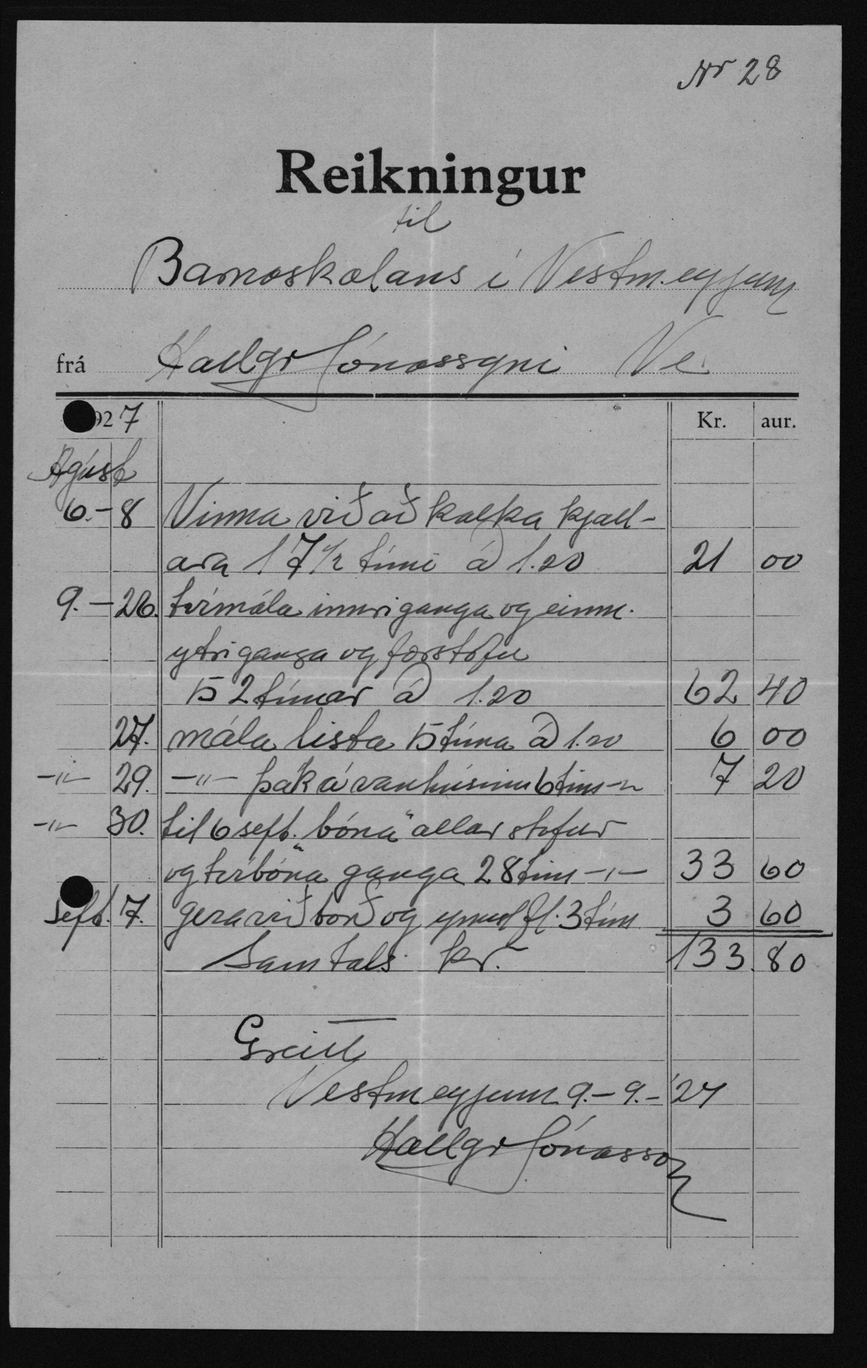 Nr 28
Reikningur
til
Barnaskolans í Vestm.eyjum
frá Hallgr Jónassyni Ve.
1927 Kr. aur.
Ágúst
6.-8 Vinna við að kalka kjall-
ara 17 1/2 tími á 1.20 21 00
9.-26. tvímála innri ganga og einm.
ytri ganga og forstofu
52 tímar á 1.20 62 40
27. mála lista 5 tíma á 1.20 6 00
-"- 29. -"- þak á vanhúsinu 6 tím -"- 7 20
-"- 30. til 6 sept. "bóna" allar stofur
og tvíbóna ganga 28 tím -"- 33 60
Sept. 7. gera við borð og ymisl fl. 3 tím 3 60
Samtals kr. 133.80
Greitt
Vestm eyjum 9.-9.-'27
Hallgr Jónasson